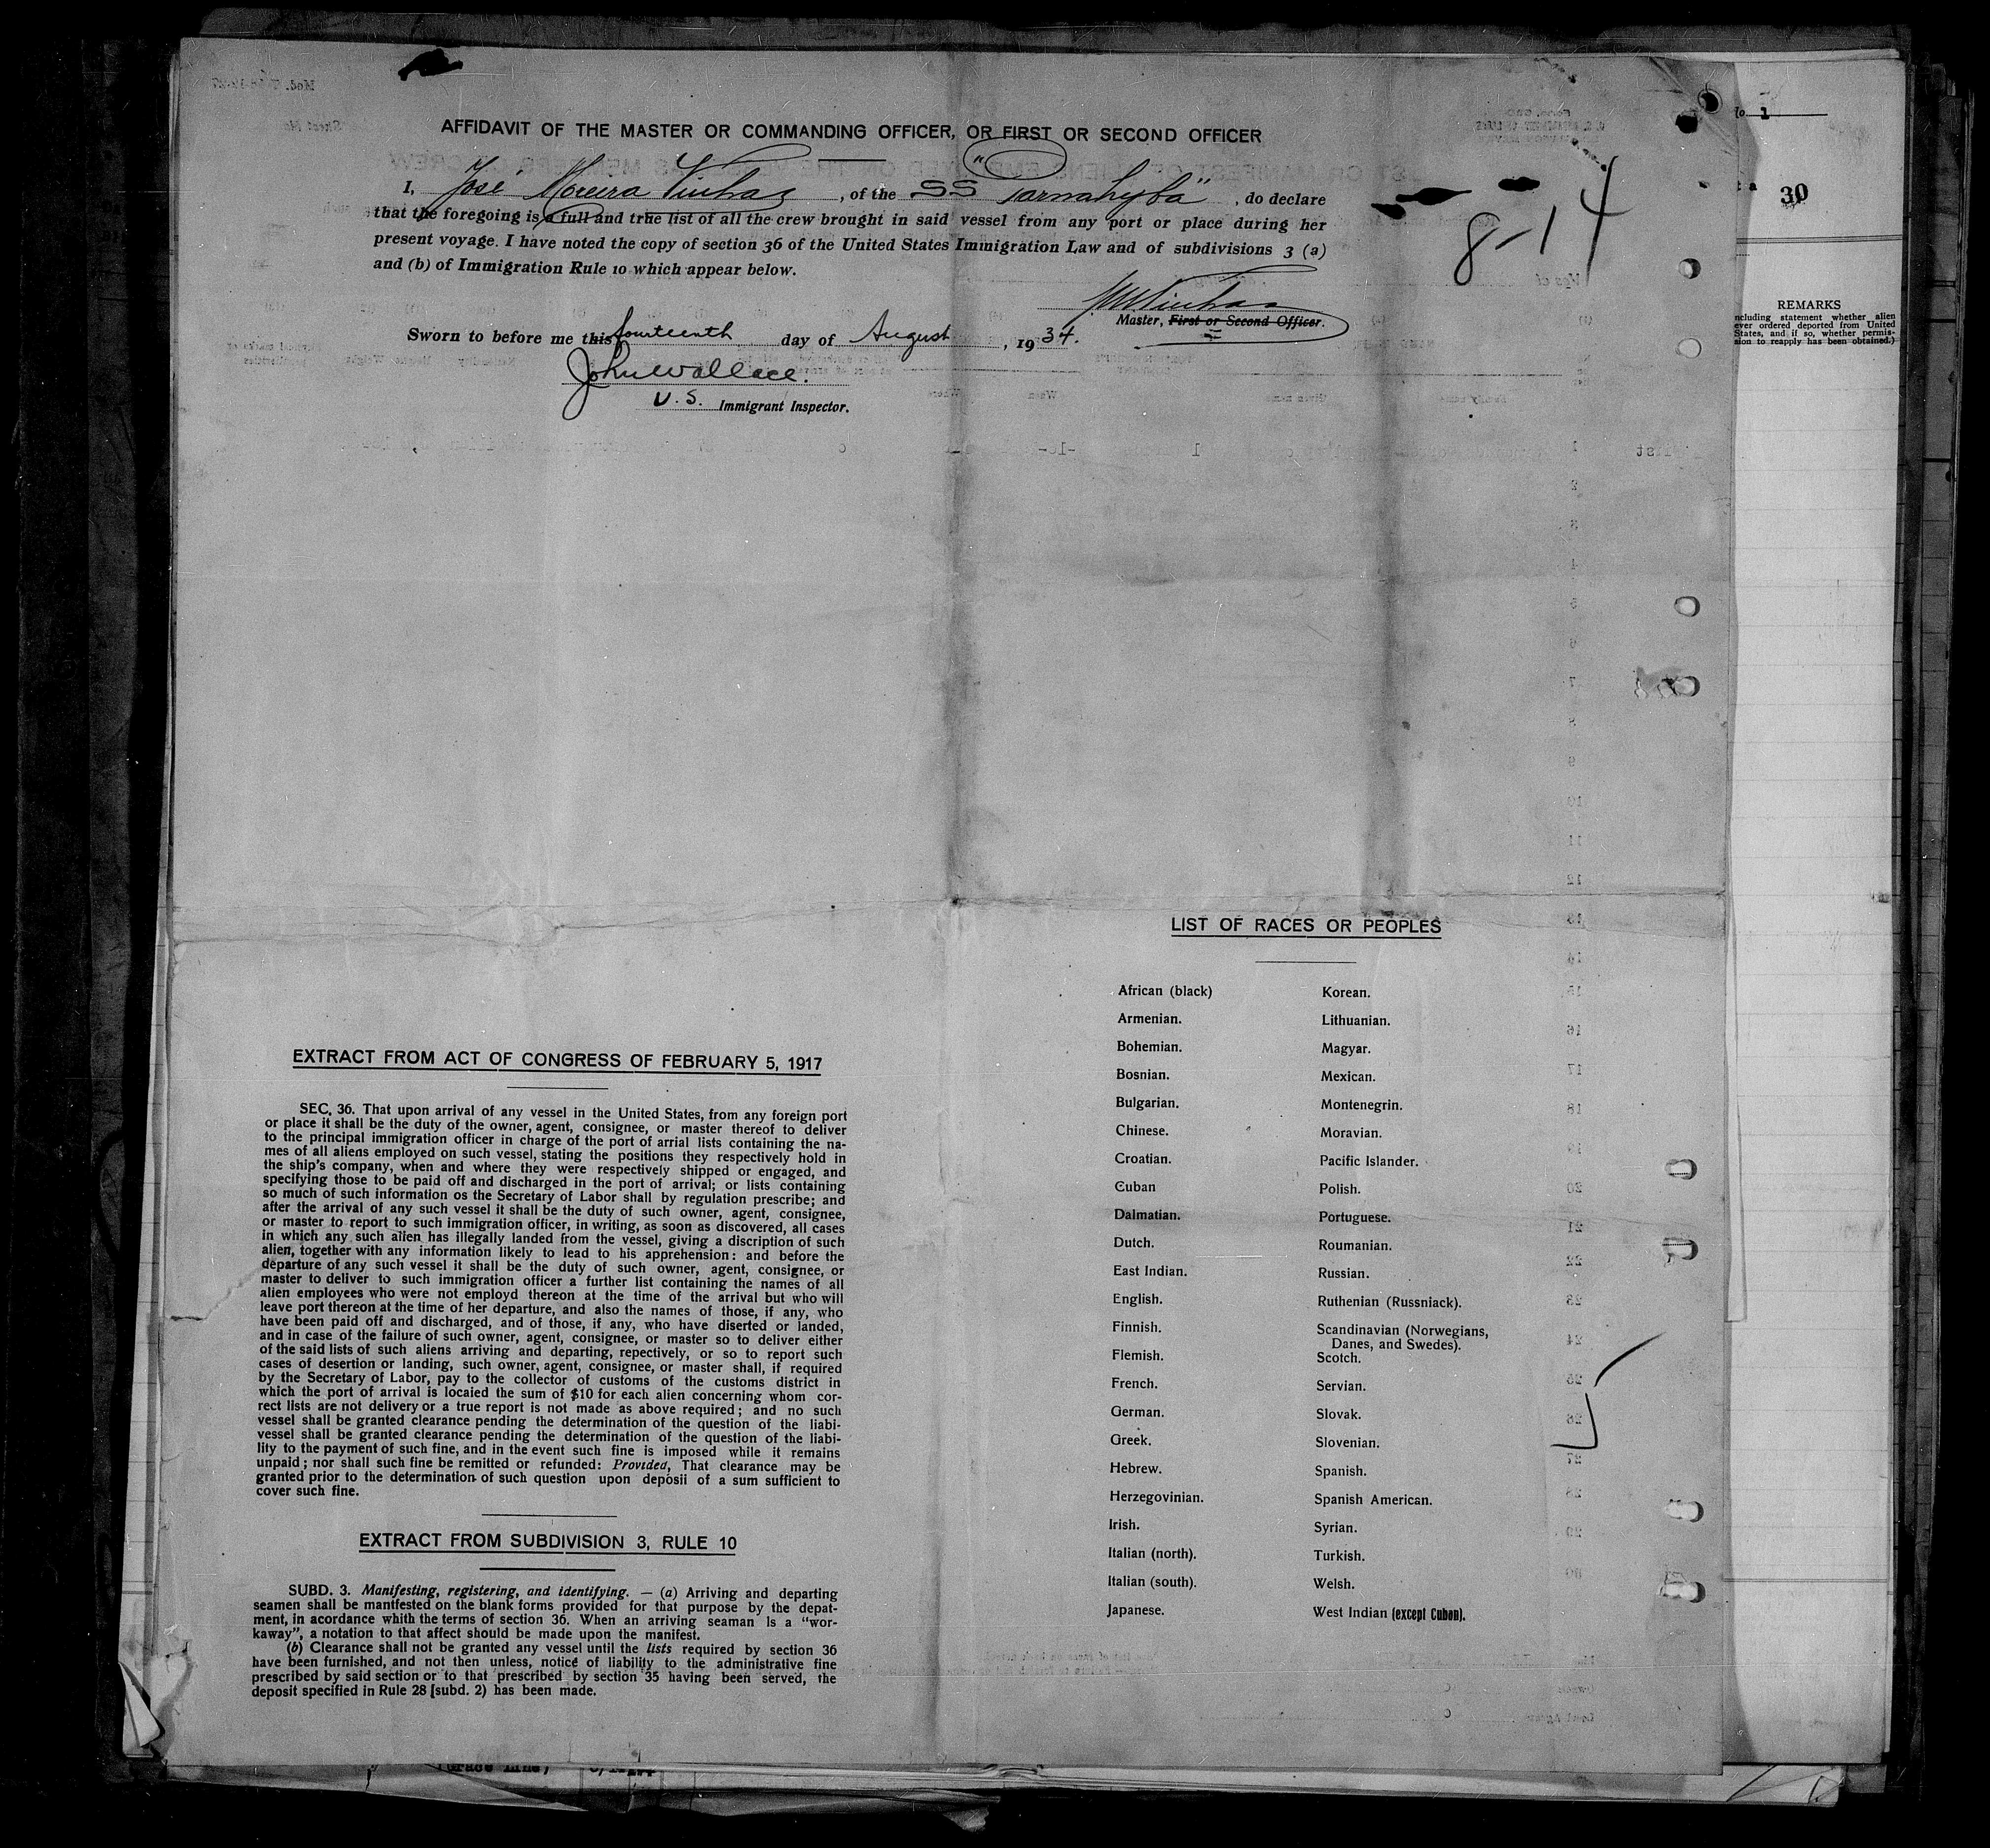 AFFIDAVIT OF THE MASTER OR COMMANDING OFFICER, OR FIRST OR SECOND OFFICER
I, José Moreira Vinhas, of the SS "Parnahyba", do declare
that the foregoing is a full and true list of all the crew brought in said vessel from any port or place during her
present voyage. I have noted the copy of section 36 of the United States Immigration Law and of subdivisions 3 (a)
and (b) of Immigration Rule 10 which appear below.
8-14
Master, First or Second Officer.
Sworn to before me this fourteenth day of August, 1934.
John Wallace.
U.S. Immigrant Inspector.
1
30
REMARKS
ncluding statement whether alien
ever ordered deported from United
States, and if so, whether permis-
sion to reapply has been obtained.)
EXTRACT FROM ACT OF CONGRESS OF FEBRUARY 5, 1917
SEC. 36. That upon arrival of any vessel in the United States, from any foreign port
or place it shall be the duty of the owner, agent, consignee, or master thereof to deliver
to the principal immigration officer in charge of the port of arrial lists containing the na-
mes of all aliens employed on such vessel, stating the positions they respectively hold in
the ship's company, when and where they were respectively shipped or engaged, and
specifying those to be paid off and discharged in the port of arrival; or lists containing
so much of such information os the Secretary of Labor shall by regulation prescribe; and
after the arrival of any such vessel it shall be the duty of such owner, agent, consignee,
or master to report to such immigration officer, in writing, as soon as discovered, all cases
in which any such alien has illegally landed from the vessel, giving a discription of such
alien, together with any information likely to lead to his apprehension: and before the
departure of any such vessel it shall be the duty of such owner, agent, consignee, or
master to deliver to such immigration officer a further list containing the names of all
alien employees who were not employd thereon at the time of the arrival but who will
leave port thereon at the time of her departure, and also the names of those, if any, who
have been paid off and discharged, and of those, if any, who have diserted or landed,
and in case of the failure of such owner, agent, consignee, or master so to deliver either
of the said lists of such aliens arriving and departing, repectively, or so to report such
cases of desertion or landing, such owner, agent, consignee, or master shall, if required
by the Secretary of Labor, pay to the collector of customs of the customs district in
which the port of arrival is locaied the sum of $10 for each alien concerning whom cor-
rect lists are not delivery or a true report is not made as above required; and no such
vessel shall be granted clearance pending the determination of the question of the liabi-
vessel shall be granted clearance pending the determination of the question of the liabi-
lity to the payment of such fine, and in the event such fine is imposed while it remains
unpaid; nor shall such fine be remitted or refunded: Provided, That clearance may be
granted prior to the determination of such question upon deposii of a sum sufficient to
cover such fine.
EXTRACT FROM SUBDIVISION 3, RULE 10
SUBD. 3. Manifesting, registering, and identifying. — (a) Arriving and departing
seamen shall be mantfested on the blank forms provided for that purpose by the depat-
ment, in acordance whith the terms of section 36. When an arriving seaman is a "wor-
kaway", a notation to that affect should be made upon the manifest.
(b) Clearance shall not be granted any vessel until the lists required by section 36
have been furnished, and not then unless, notice of liability to the administrative fine
prescribed by said section or to that prescribed by section 35 having been served, the
deposit specified in Rule 28 [subd. 2) has been made.
LIST OF RACES OR PEOPLES
African (black)
Armenian.
Bohemian.
Bosnian.
Bulgarian.
Chinese.
Croatian.
Cuban
Dalmatian.
Dutch.
East Indian.
English.
Finnish.
Flemish.
French.
German.
Greek.
Hebrew.
Herzegovinian.
Irish.
Italian (north).
Italian (south).
Japanese.
Korean.
Lithuanian.
Magyar.
Mexican.
Montenegrin.
Moravian.
Pacific Islander.
Polish.
Portuguese.
Roumanian.
Russian.
Ruthenian (Russniack).
Scandinavian (Norwegians,
Danes, and Swedes).
Scotch.
Servian.
Slovak.
Slovenian.
Spanish.
Spanish American.
Syrian.
Turkish.
Welsh.
West Indian (except Cuban).